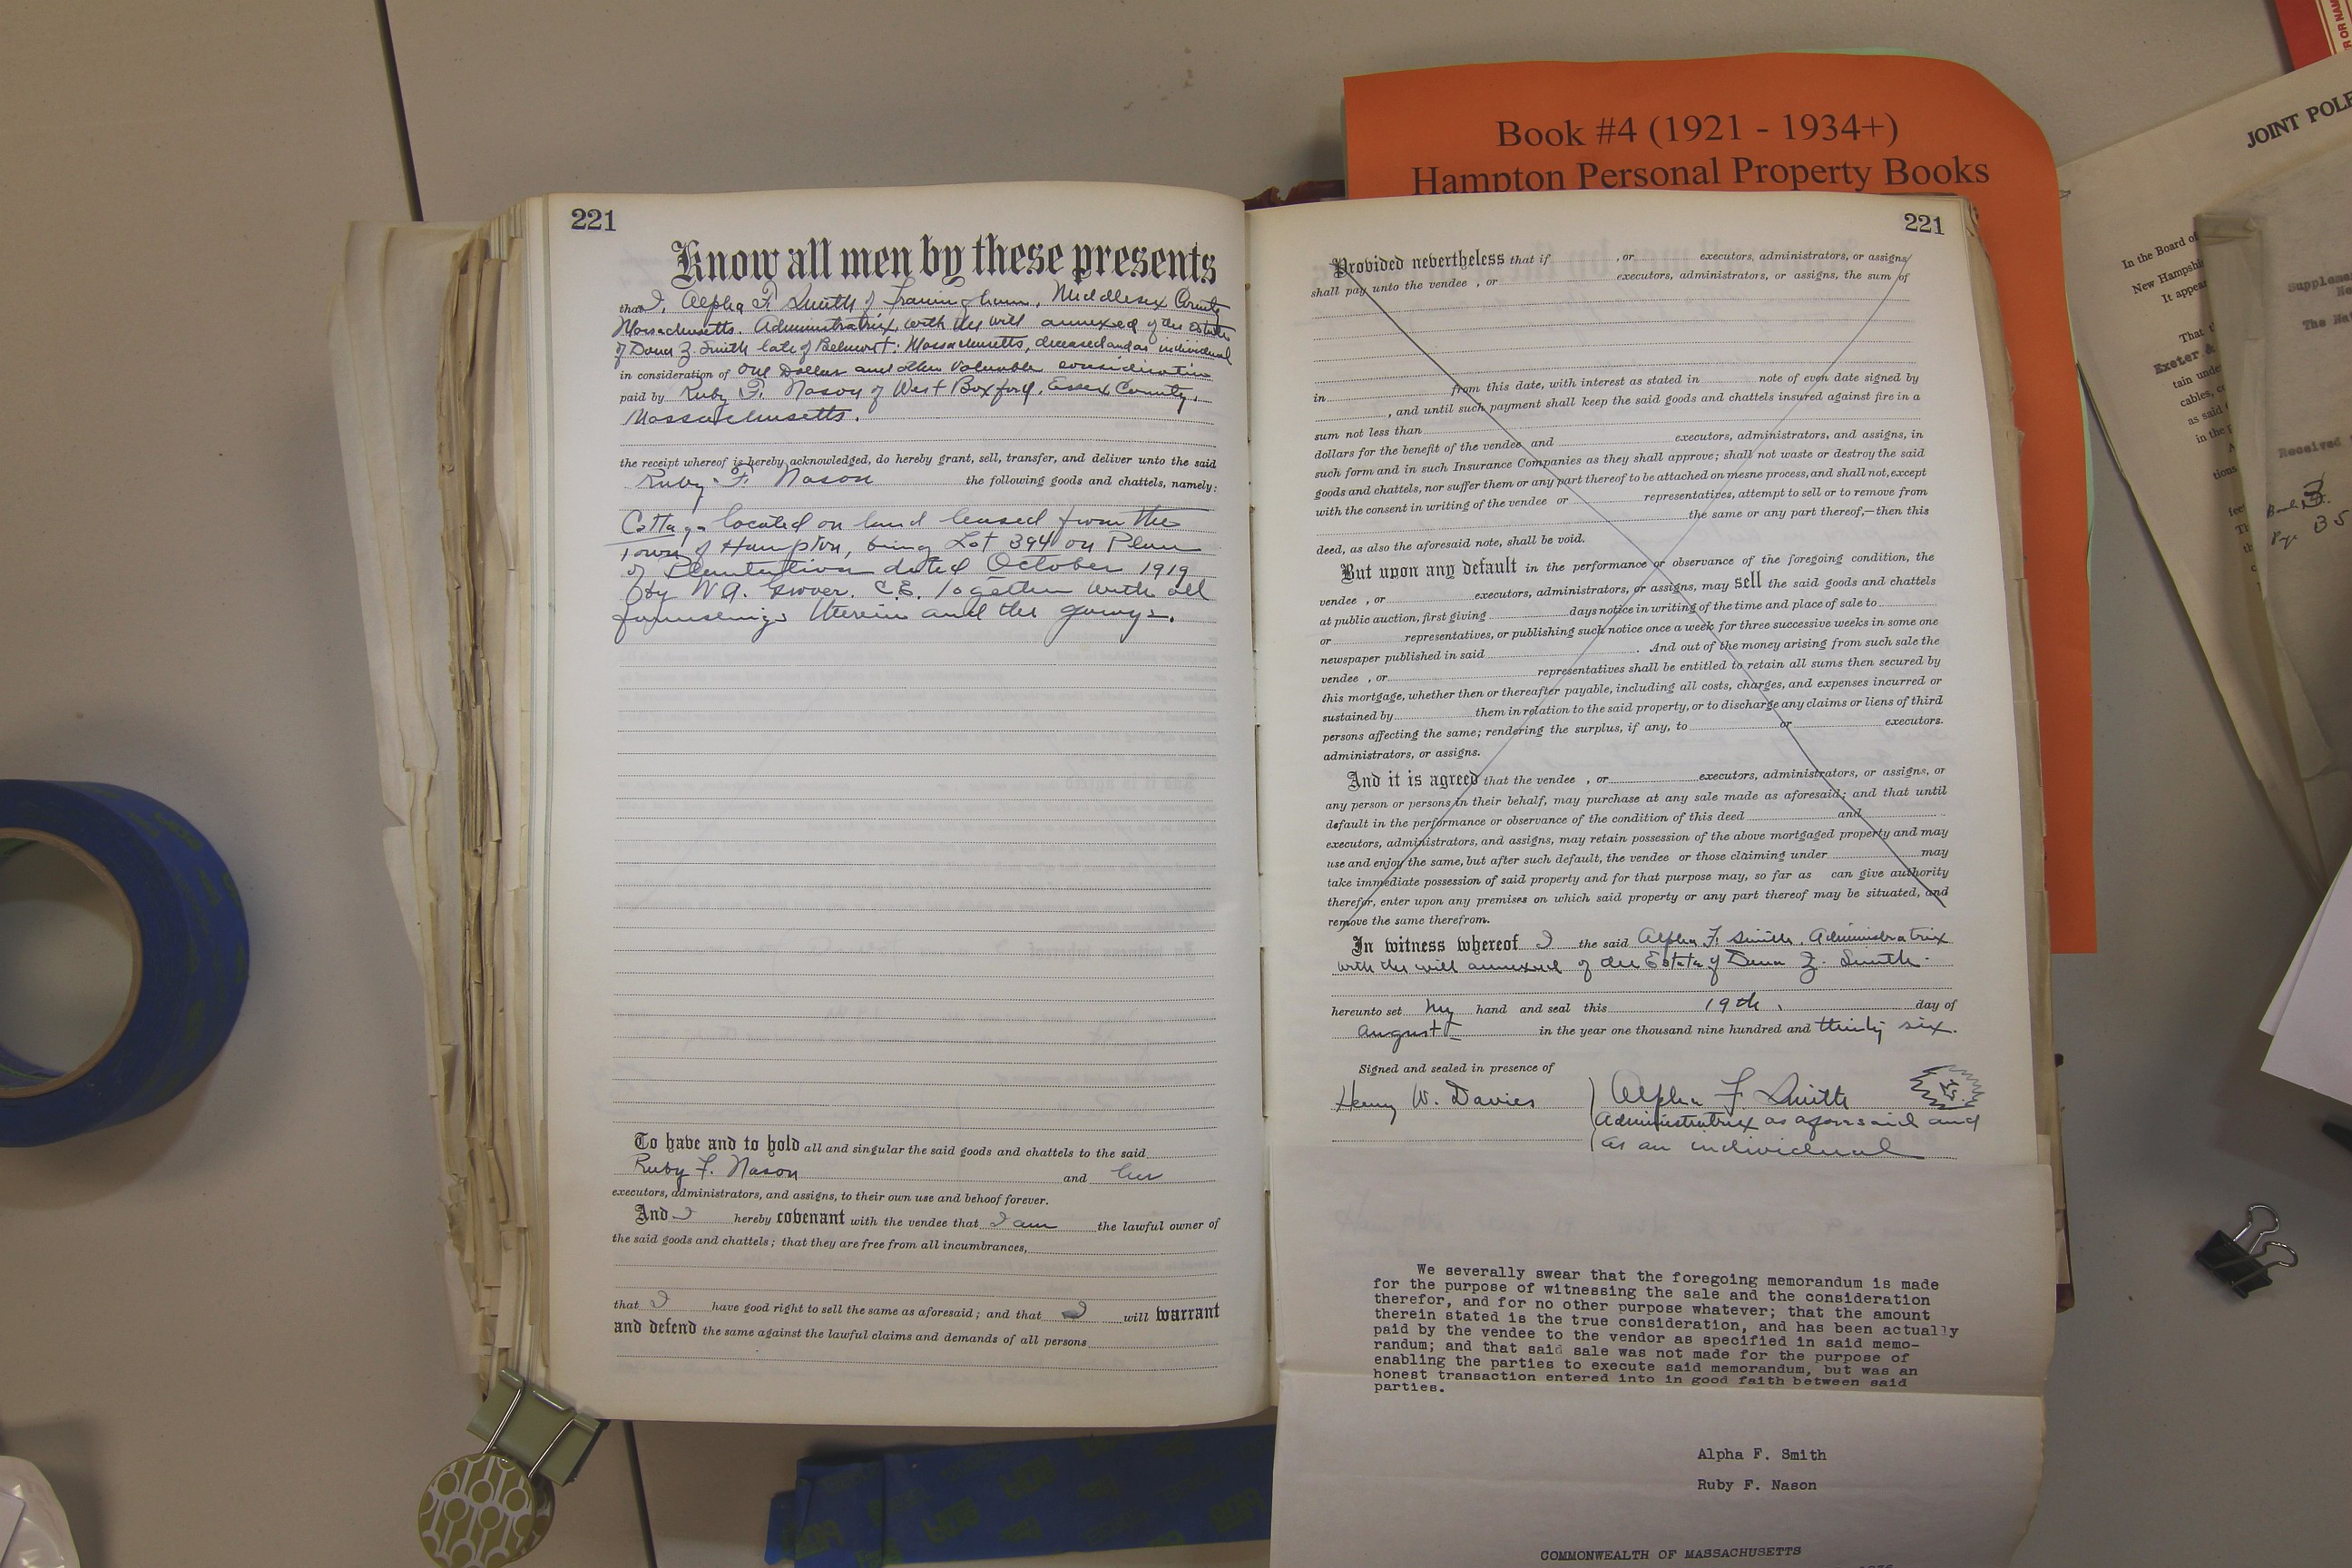 Book #4 (1921 - 1934+)
Hampton Personal Property Books
221
Know all men by these presents
that I, Alpha F. Smith of Framingham, Middlesex County
Massachusetts. Administratrix, with the will annexed of the Estate
of Dana Z. Smith late of Belmont, Massachusetts, deceased and as individual
in consideration of One Dollar and other valuable consideration
paid by Ruby F. Nason of West Boxford, Essex County,
Massachusetts.
the receipt whereof is hereby acknowledged, do hereby grant, sell, transfer, and deliver unto the said
Ruby F. Nason the following goods and chattels, namely:
Cottage located on land leased from the
Town of Hampton, being Lot 394 on Plan
of Plantation dated October 1919
by W. A. Grover. C.E. Together with all
furnishings therein and the garage.
To have and to hold all and singular the said goods and chattels to the said
Ruby F. Nason and her
executors, administrators, and assigns, to their own use and behoof forever.
And I hereby covenant with the vendee that I am the lawful owner of
the said goods and chattels; that they are free from all incumbrances,
that I have good right to sell the same as aforesaid; and that I will warrant
and defend the same against the lawful claims and demands of all persons
221
Provided nevertheless that if , or executors, administrators, or assigns
shall pay unto the vendee , or executors, administrators, or assigns, the sum of
in from this date, with interest as stated in note of even date signed by
, and until such payment shall keep the said goods and chattels insured against fire in a
sum not less than
dollars for the benefit of the vendee and executors, administrators, and assigns, in
such form and in such Insurance Companies as they shall approve; shall not waste or destroy the said
goods and chattels, nor suffer them or any part thereof to be attached on mesne process, and shall not, except
with the consent in writing of the vendee or representatives, attempt to sell or to remove from
the same or any part thereof,—then this
deed, as also the aforesaid note, shall be void.
But upon any default in the performance or observance of the foregoing condition, the
vendee , or executors, administrators, or assigns, may sell the said goods and chattels
at public auction, first giving days notice in writing of the time and place of sale to
or representatives, or publishing such notice once a week for three successive weeks in some one
newspaper published in said . And out of the money arising from such sale the
vendee , or representatives shall be entitled to retain all sums then secured by
this mortgage, whether then or thereafter payable, including all costs, charges, and expenses incurred or
sustained by them in relation to the said property, or to discharge any claims or liens of third
persons affecting the same; rendering the surplus, if any, to or executors.
administrators, or assigns.
And it is agreed that the vendee , or executors, administrators, or assigns, or
any person or persons in their behalf, may purchase at any sale made as aforesaid; and that until
default in the performance or observance of the condition of this deed and
executors, administrators, and assigns, may retain possession of the above mortgaged property and may
use and enjoy the same, but after such default, the vendee or those claiming under may
take immediate possession of said property and for that purpose may, so far as can give authority
therefor, enter upon any premises on which said property or any part thereof may be situated, and
remove the same therefrom.
In witness whereof I the said Alpha F. Smith. Administratrix
with the will annexed of the Estate of Dana Z. Smith.
hereunto set my hand and seal this 19th, day of
August in the year one thousand nine hundred and thirty six.
Signed and sealed in presence of
Henry W. Davies
Alpha F. Smith
Administratrix as aforesaid and
as an individual
We severally swear that the foregoing memorandum is made
for the purpose of witnessing the sale and the consideration
therefor, and for no other purpose whatever; that the amount
therein stated is the true consideration, and has been actually
paid by the vendee to the vendor as specified in said memo-
randum; and that said sale was not made for the purpose of
enabling the parties to execute said memorandum, but was an
honest transaction entered into in good faith between said
parties.
Alpha F. Smith
Ruby F. Nason
COMMONWEALTH OF MASSACHUSETTS
JOINT POLE
In the Board of
New Hampshi
It appear
That t
Exeter &
tain unde
cables, co
as said
in the p
tions
Supplem
The Nat
Received
Book 3
Page
OR NAM